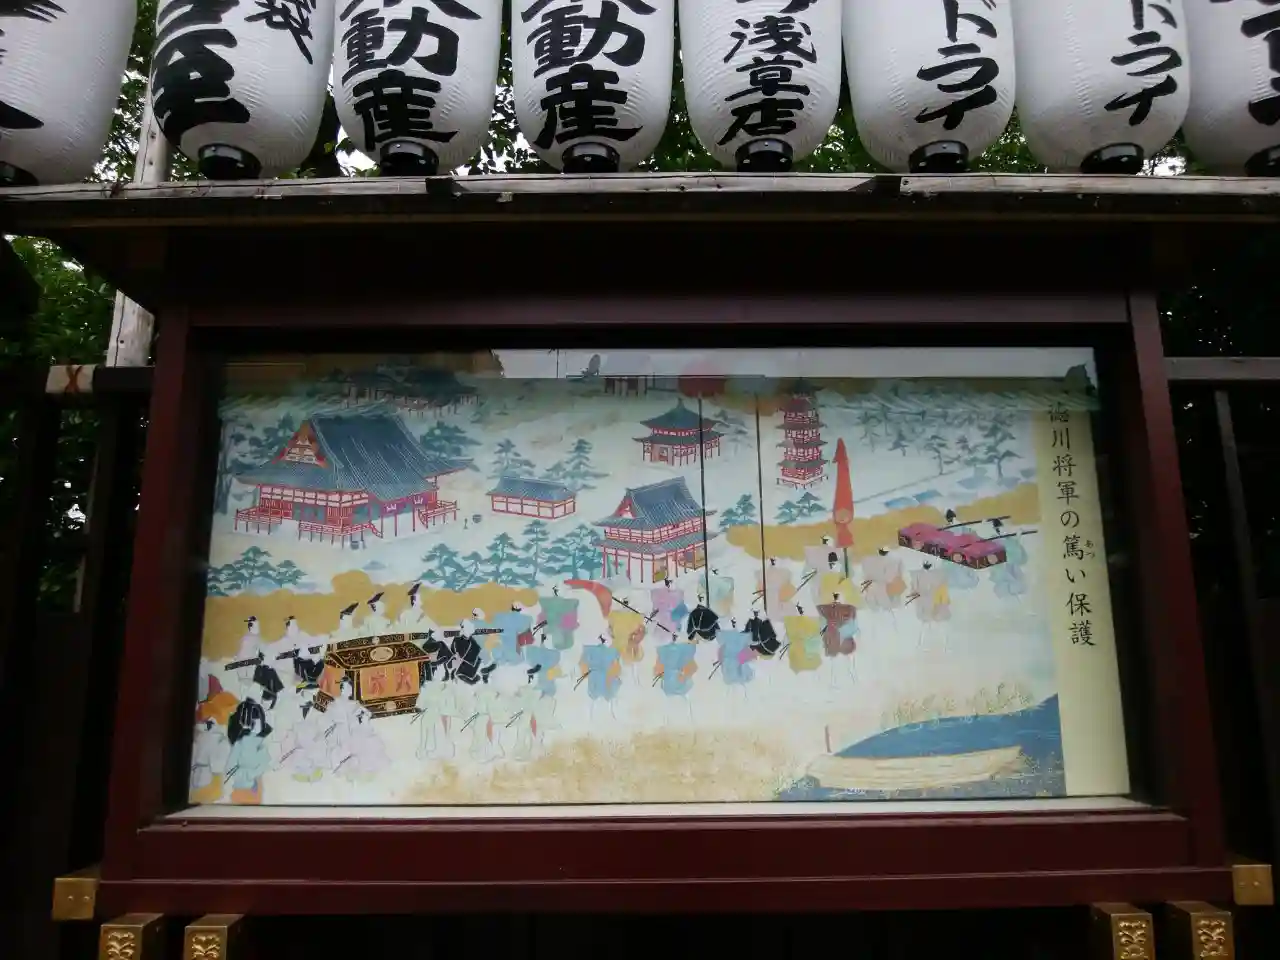 動産
動産
浅草店
ドライ
ドライ
徳川将軍の篤い保護
あつ